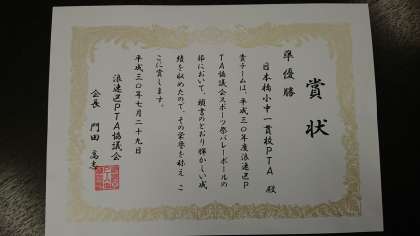 賞状
準優勝
日本橋小中一貫校PTA 殿
貴チームは、平成三〇年度浪速区P
TA協議会スポーツ祭バレーボールの
部において、頭書のとおり輝かしい成
績を収めたので、その栄誉を称え こ
こに賞します。
平成三〇年七月二十九日
浪速区PTA協議会
会長 門田